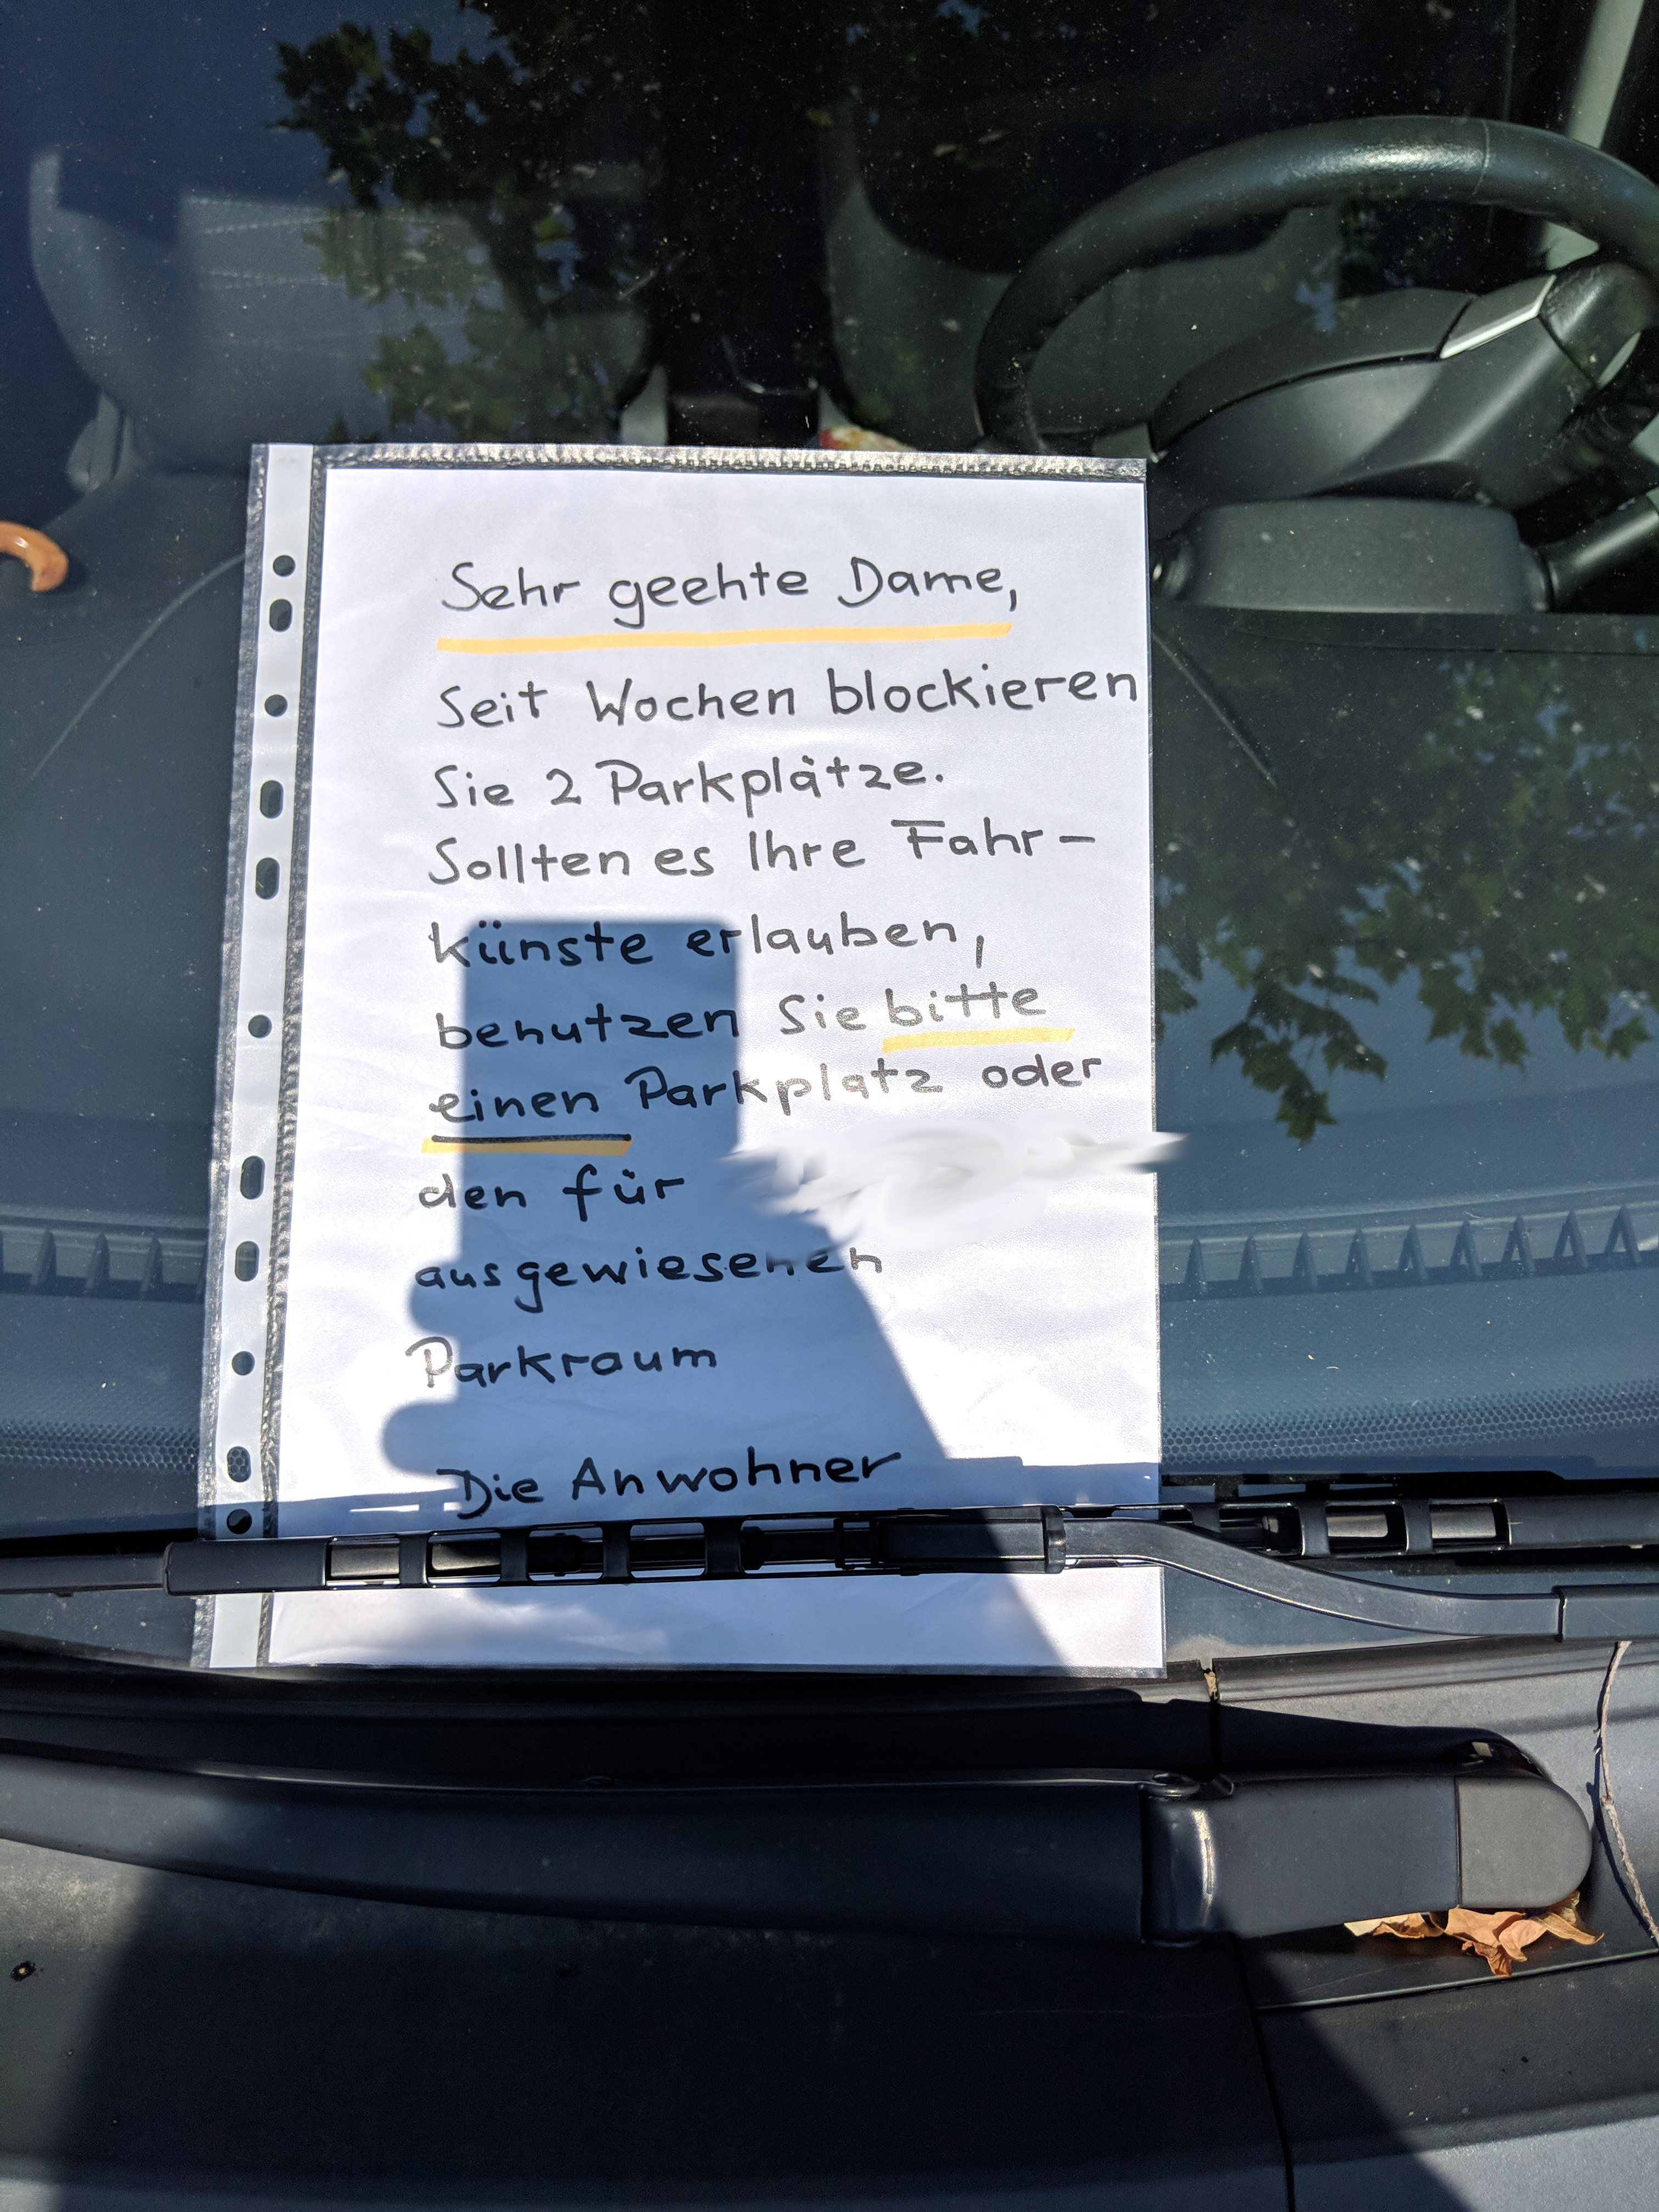 Sehr geehte Dame,
Seit Wochen blockieren
Sie 2 Parkplätze.
Sollten es Ihre Fahr-
künste erlauben,
benutzen Sie bitte
einen Parkplatz oder
den für
ausgewiesenen
Parkraum
Die Anwohner